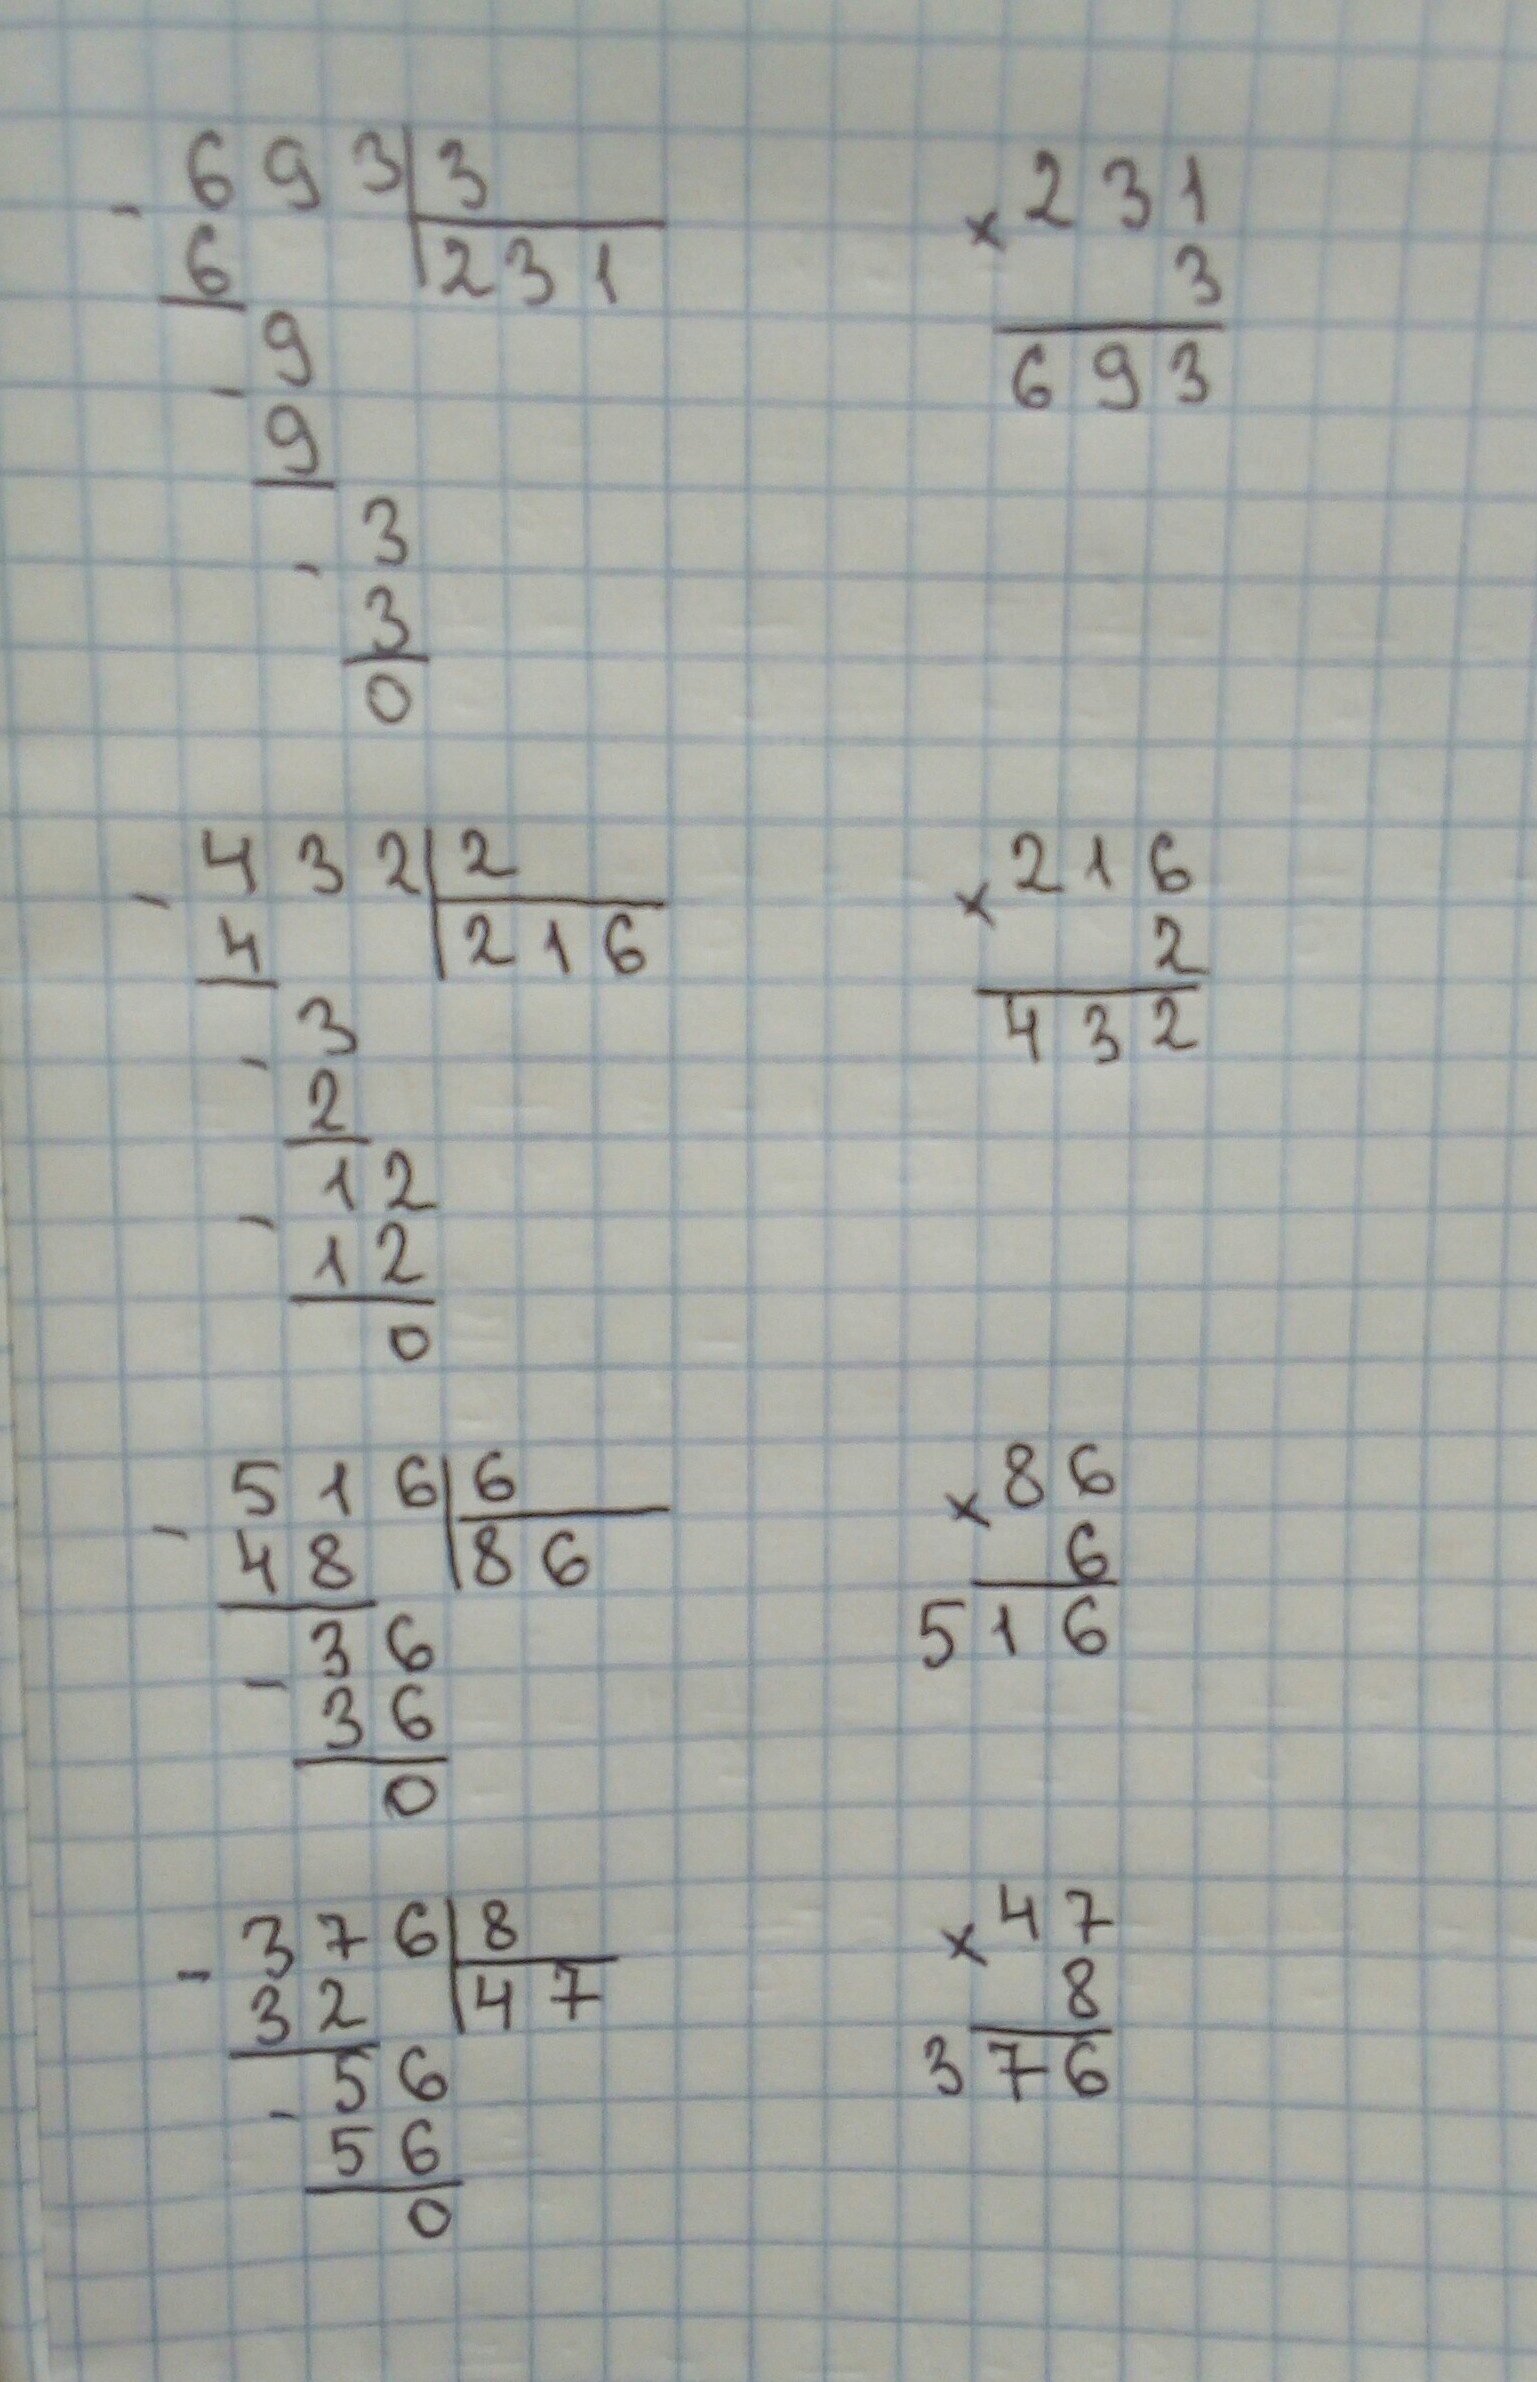 - 693|3
6 |231
9
- 9
3
- 3
0
× 231
3
693
- 432|2
4 |216
3
- 2
12
- 12
0
× 216
2
432
- 516|6
48 |86
36
- 36
0
× 86
6
516
- 376|8
32 |47
56
- 56
0
× 47
8
376